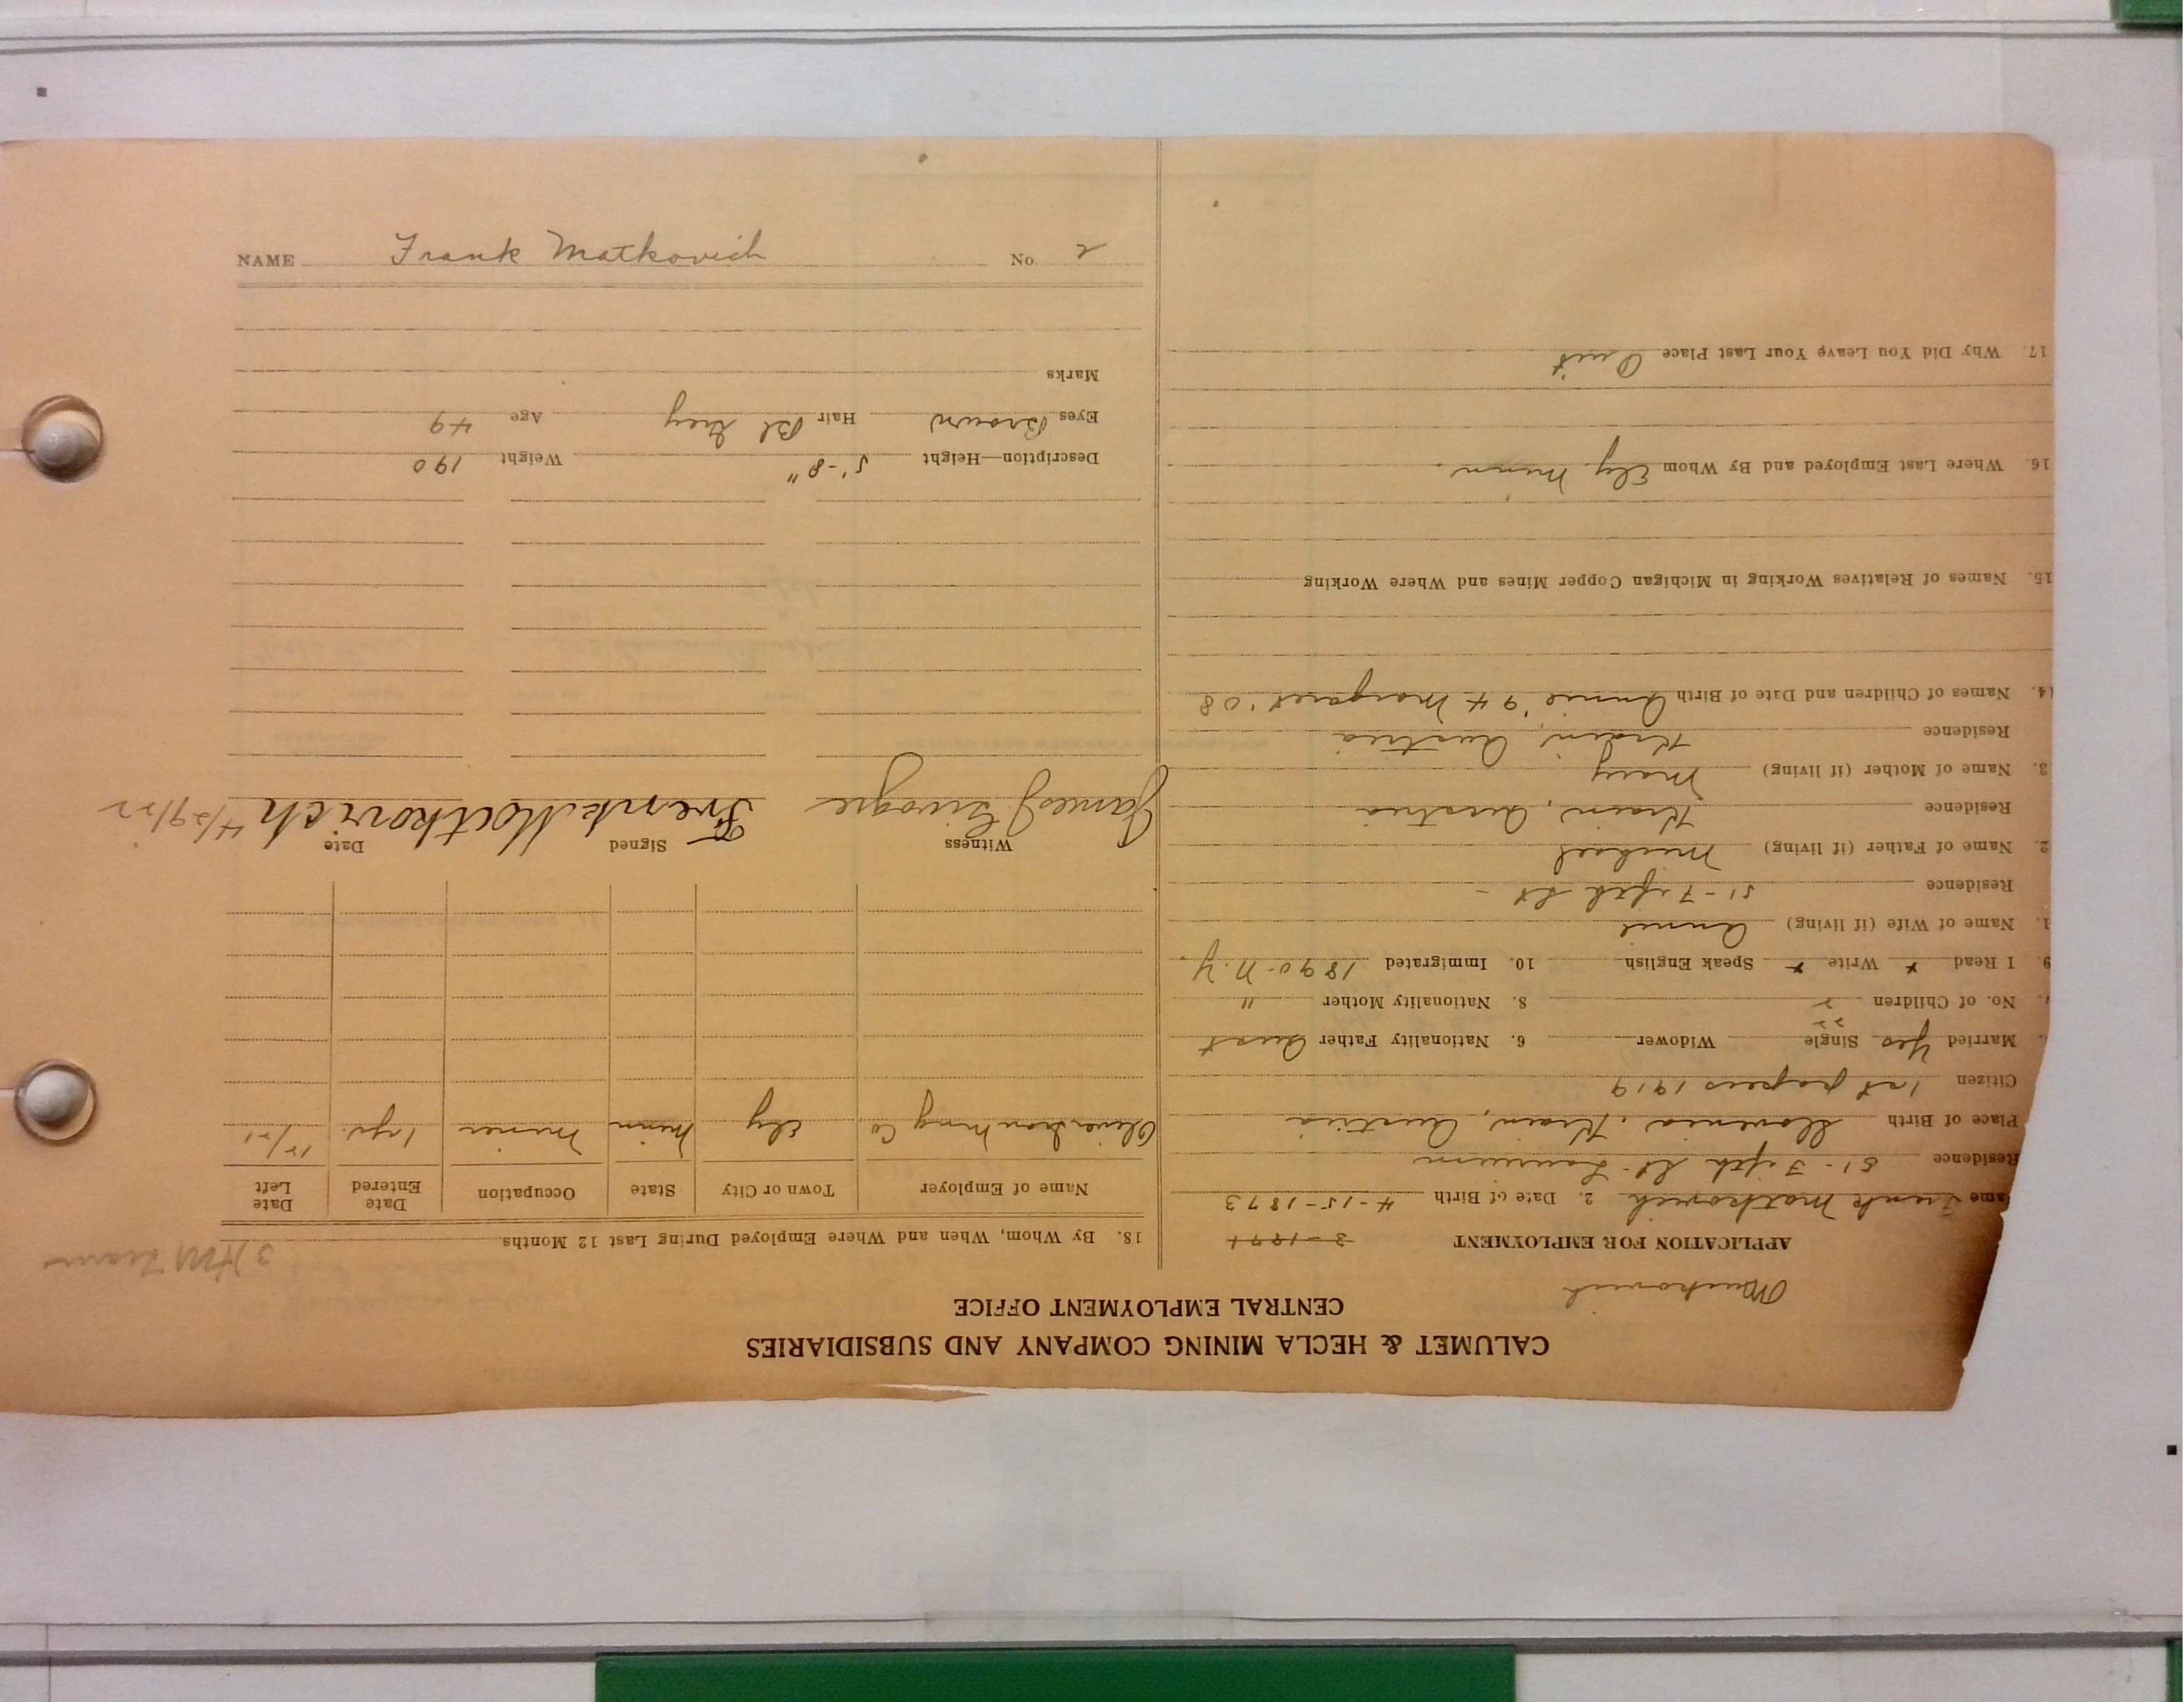 CALUMET & HECLA MINING COMPANY AND SUBSIDIARIES
CENTRAL EMPLOYMENT OFFICE
APPLICATION FOR EMPLOYMENT 3-1871
ame Frank Matkovich 2. Date of Birth 4-15-1873
Residence 51-Fifth St. Laurium
Place of Birth Slovenia, Krain, Austria
Citizen 1st papers 1919
Married Yes Single Widower 6. Nationality Father Aust
No. of Children 2 8. Nationality Mother "
9. I Read x Write x Speak English 10. Immigrated 1890-N.Y.
1. Name of Wife (if living) Annie
Residence 51-Fifth St-
2. Name of Father (if living) Michael
Residence Krain, Austria
3. Name of Mother (if living) Mary
Residence Krain, Austria
14. Names of Children and Date of Birth Annie, '94 Margaret '08
15. Names of Relatives Working in Michigan Copper Mines and Where Working
16. Where Last Employed and By Whom Ely, Minn.
17. Why Did You Leave Your Last Place Quit
18. By Whom, When and Where Employed During Last 12 Months
Name of Employer Town or City State Occupation Date Entered Date Left
Oliver Iron Mng Co. Ely Minn Miner 1 yr. 12/21
Witness Signed Date
James Frank Matkovich 4/29/22
Description—Height 5'-8" Weight 190
Eyes Brown Hair Bl Grey Age 49
Marks
NAME Frank Matkovich No. 2